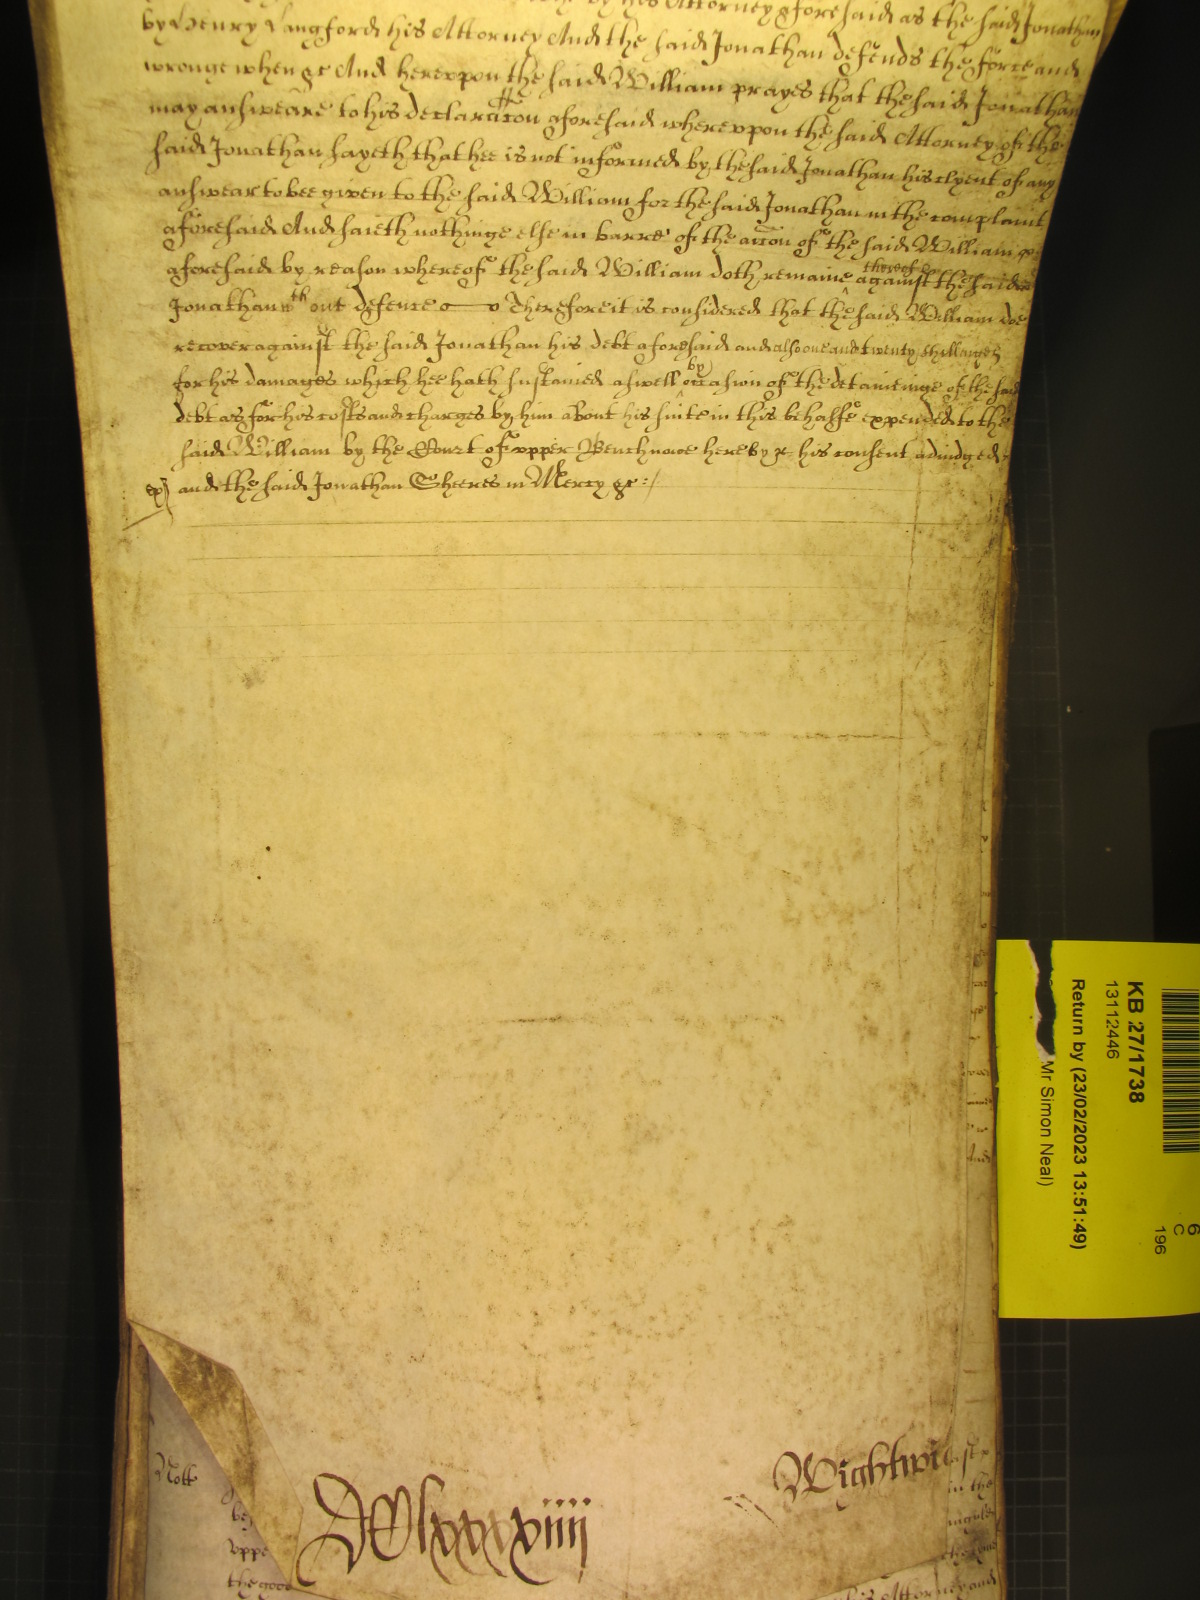 by his Attorney aforesaid as the said Jonathan
by Henry Langford his Attorney And the said Jonathan defends the force and
wronge when &c And herevpon the said William prayes that the said Jonathan
may answeare to his declaracon aforesaid wherevpon the said Attorney of the
said Jonathan sayeth that hee is not informed by the said Jonathan his clyent of any
answear to bee given to the said William for the said Jonathan in the complaint
aforesaid And saieth nothinge else in barre of the accon of the said William
aforesaid by reason whereof the said William doth remaine thereof against the said
Jonathan wth out defence Therefore it is considered that the said William doe
recover against the said Jonathan his debt aforesaid and alsoe one and twenty shillinges
for his damages which hee hath sustained aswell by occasion of the detaininge of the said
debt as for his costs and charges by him about his suite in this behalfe expended to the
said William by the Court of vpper Bench nowe here by &c his consent adiudged
and the said Jonathan Sheeres in Mercy &c
Wightwic
Nott
vppe
the good
in the
his Attorney and
KB 27/1738
13112446
Return by (23/02/2023 13:51:49)
Mr Simon Neal)
6
C
196